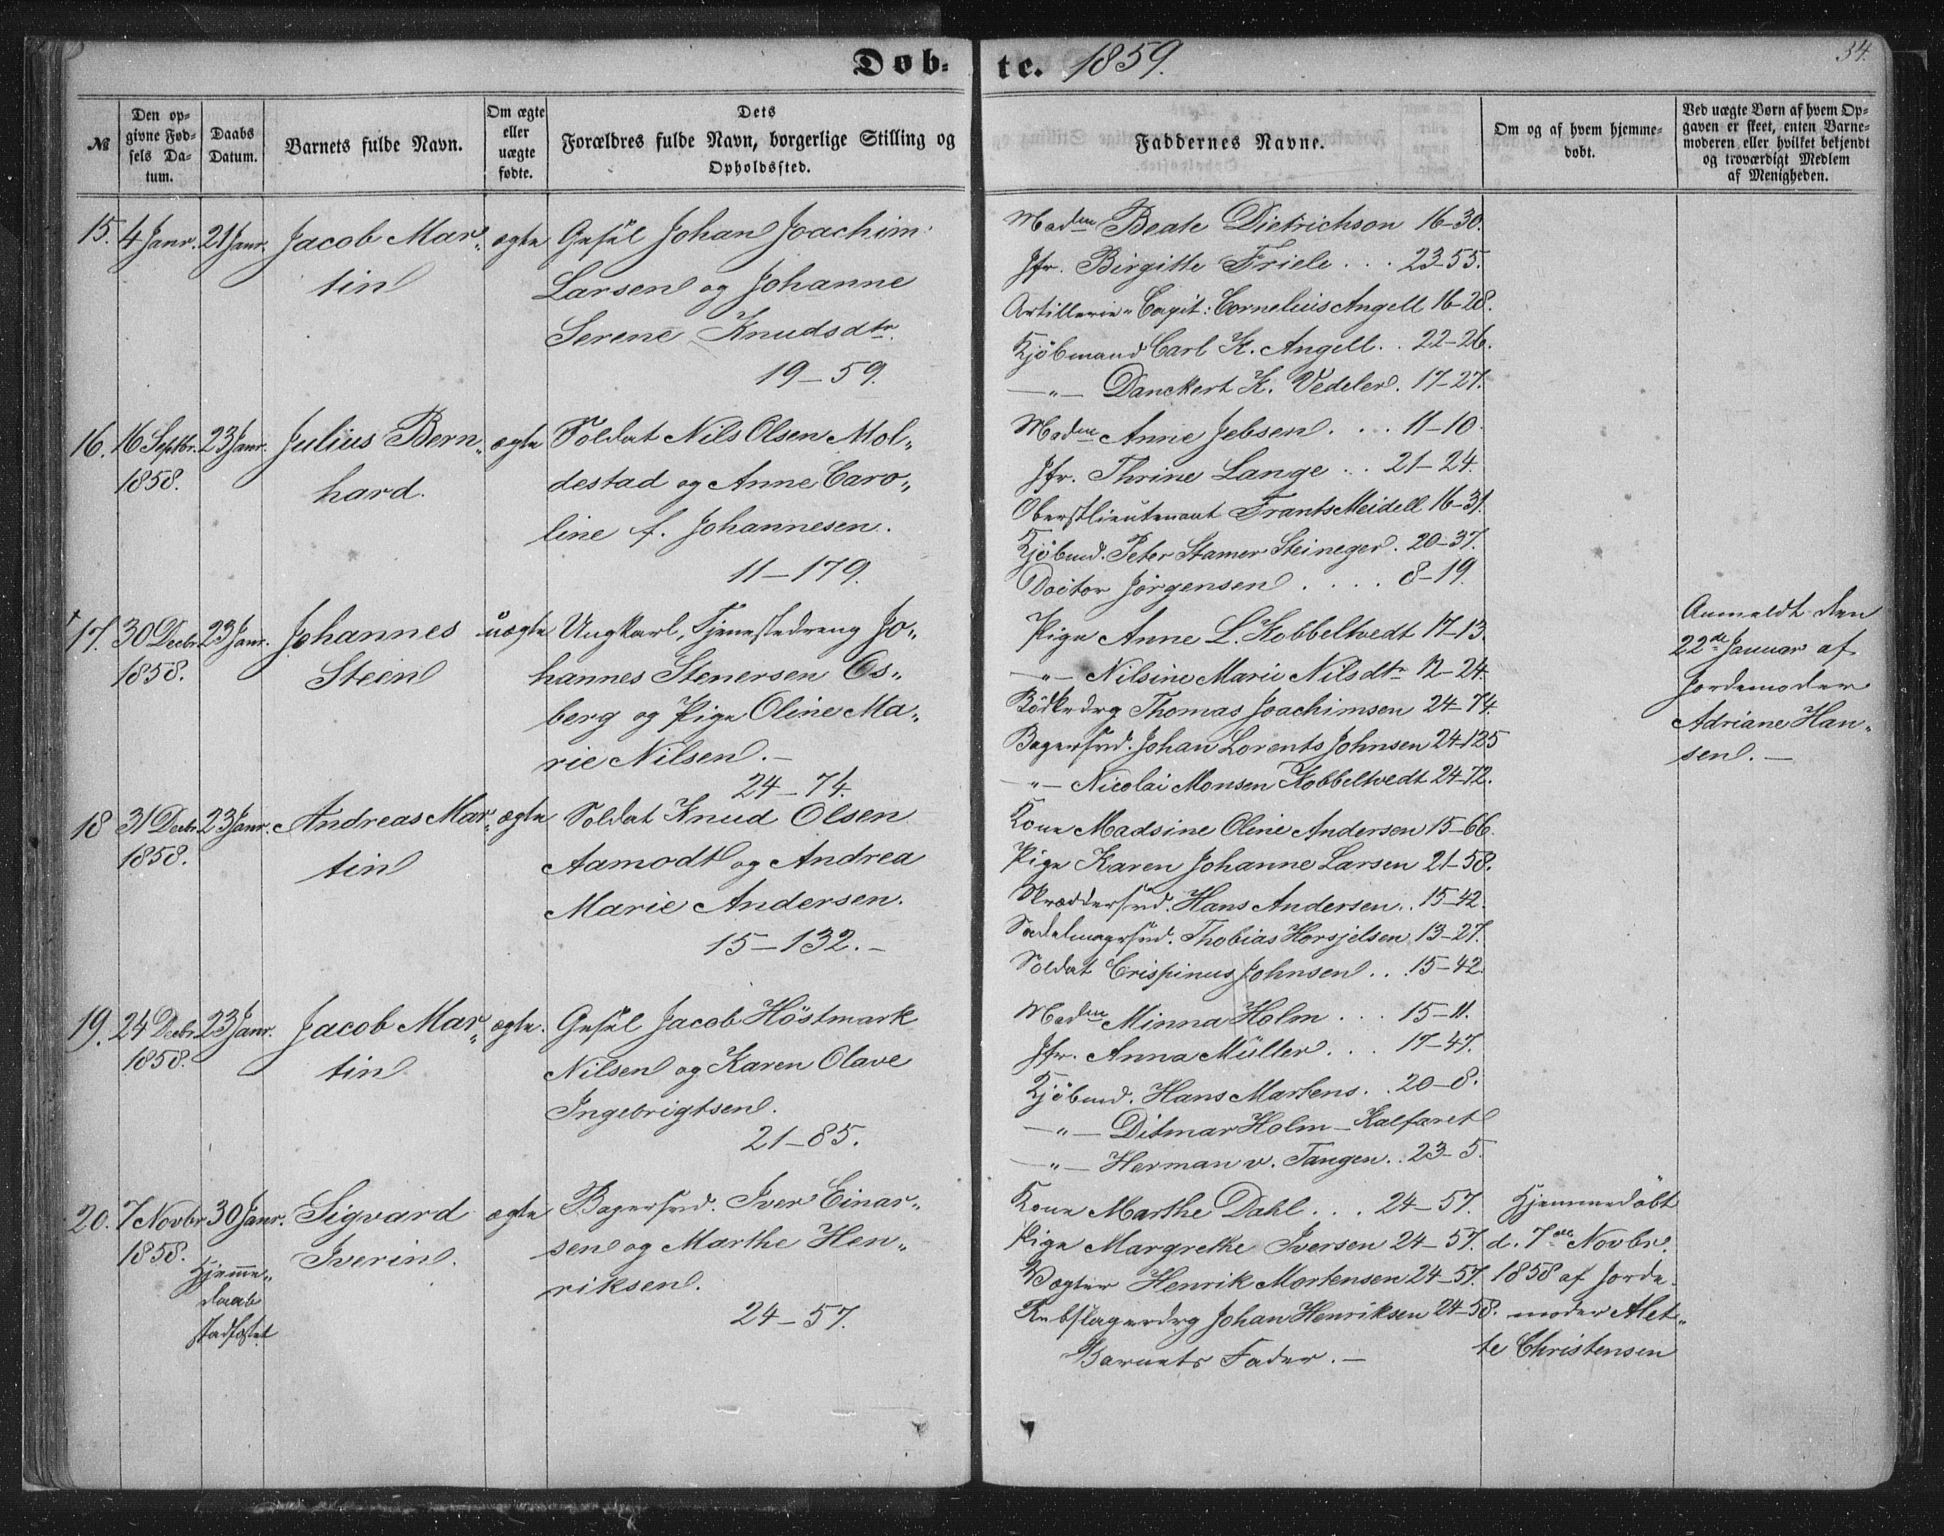 Døb-
te. 1859.
34.
№
Den op-
givne Fød-
sels Da-
tum.
Daabs
Datum.
Barnets fulde Navn.
Om ægte
eller
uægte
fødte.
Dets
Forældres fulde Navn, borgerlige Stilling og
Opholdssted.
Faddernes Navne.
Om og af hvem hjemme-
døbt.
Ved uægte Børn af hvem Op-
gaven er skeet, enten Barne-
moderen eller hvilket bekjendt
og troværdigt Medlem
af Menigheden.
15. 4 Janr. 21 Janr. Jacob Mar„
tin
ægte
Gesel Johan Joachim
Larsen og Johanne
Serene Knudsdtr.
19–59.
Madme Beate Dietrichson 16–30.
Jfr. Birgitte Friele . . . 23–55.
Artillerie„ Capit: Cornelius Angell 16–28.
Kjöbmand Carl K. Angell . . 22–26.
—„— Danckert K. Vedeler. 17–27.
16. 16 Septbr. 23 Janr. Julius Bern„
1858.
hard.
ægte
Soldat Nils Olsen Mol„
destad og Anne Caro„
line f. Johannesen.
11–179.
Madme Anne Jebsen . . . 11–10.
Jfr. Thrine Lange . . 21–24.
Oberstlieutenant Frants Meidell 16–31.
Kjöbmd. Peter Stamer Steineger. 20–37.
Doctor Jörgensen . . . . 8–19.
17. 30 Decbr. 23 Janr. Johannes
1858.
Steen
uægte
Ungkarl, Tjenestedreng Jo„
hannes Stenersen Es„
berg og Pige Oline Ma„
rie Nilsen. –
24–74.
Pige Anne L. Kobbeltvedt 17–13.
„— Nilsine Marie Nilsdtr 12–24.
Bödkedrg Thomas Joachimsen 24–74.
Bagersvd. Johan Lorents Johnsen 24–125
„— Nicolai Monsen Kobbeltvedt 24–72.
Anmeldt den
22de Januar af
Jordemoder
Adriane Han„
sen. —
18 31 Decbr. 23 Janr. Andreas Mar„
1858.
tin
ægte
Soldat Knud Olsen
Aamodt og Andrea
Marie Andersen.
15–132. –
Kone Madsine Oline Andersen 15–66.
Pige Karen Johanne Larsen 21–58.
Skræddersvd. Hans Andersen . . 15–42.
Sadelmagersvd. Thobias Horsjelsen. 13–27.
Soldat Crispinus Johnsen . . 15–42.
19. 24 Decbr. 23 Janr. Jacob Mar„
1858.
tin
ægte.
Gesel Jacob Höstmark
Nilsen og Karen Olave
Ingebrigtsen.
21–85.
Madme Minna Holm . . . 15–11.
Jfr. Anna Müller . . . 17–47.
Kjöbmd. Hans Martens . . 20–8.
—„— Ditmar Holm – Kalfaret
—„— Herman v. Tangen . . 23–5.
20. 7 Novbr 30 Janr. Sigvard
1858.
Iverin.
Hjemme„
daab
stadfæstet
ægte
Bagersvd. Iver Einar„
sen og Marthe Hen„
riksen.
24–57.
Kone Marthe Dahl . . . 24–57.
Pige Margrethe Iversen 24–57.
Vægter Henrik Mortensen 24–57.
Rebslagerdrg Johan Henriksen 24–58.
Barnets Fader. —
Hjemmedöbt
d. 7de Novbr.
1858 af Jorde„
moder Alet„
te Christensen